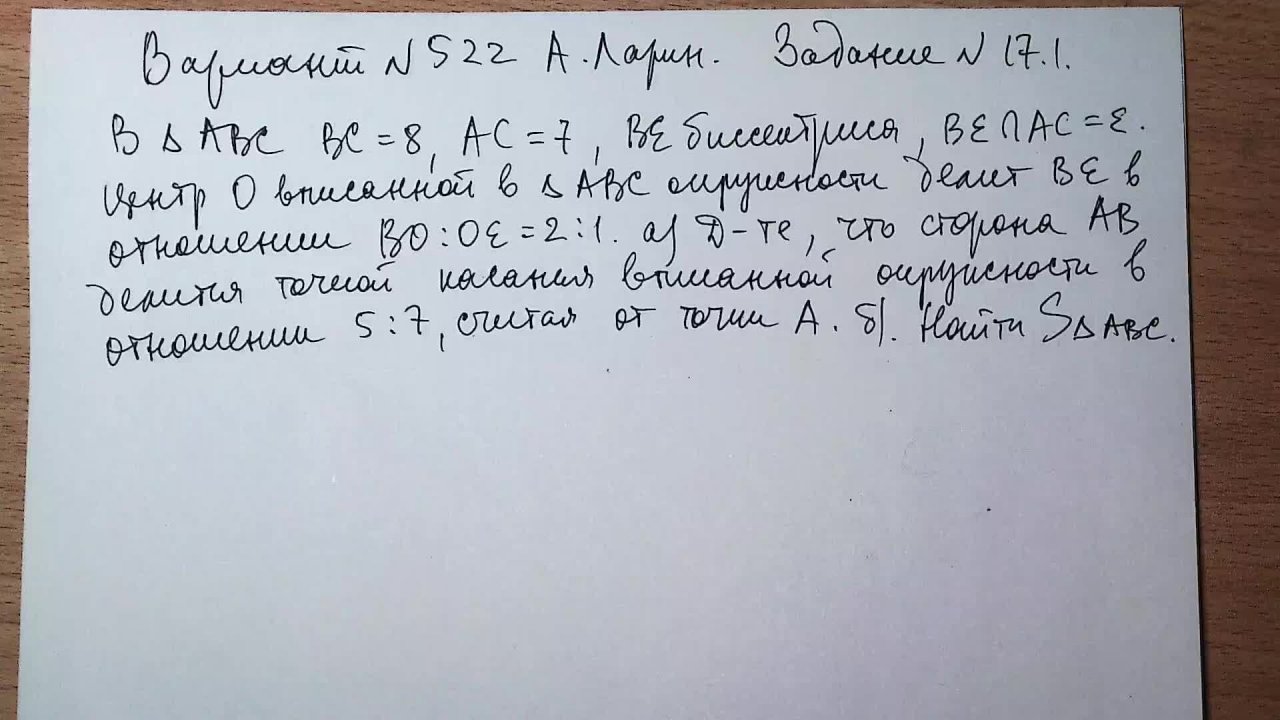 Вариант N 522 А. Ларин. Задание N 17.1.
В Δ ABC BC = 8, AC = 7, BE биссектриса, BE ∩ AC = E.
Центр O вписанной в Δ ABC окружности делит BE в
отношении BO : OE = 2 : 1. а) Д-те, что сторона AB
делится точкой касания вписанной окружности в
отношении 5 : 7, считая от точки A. б). Найти S Δ ABC.